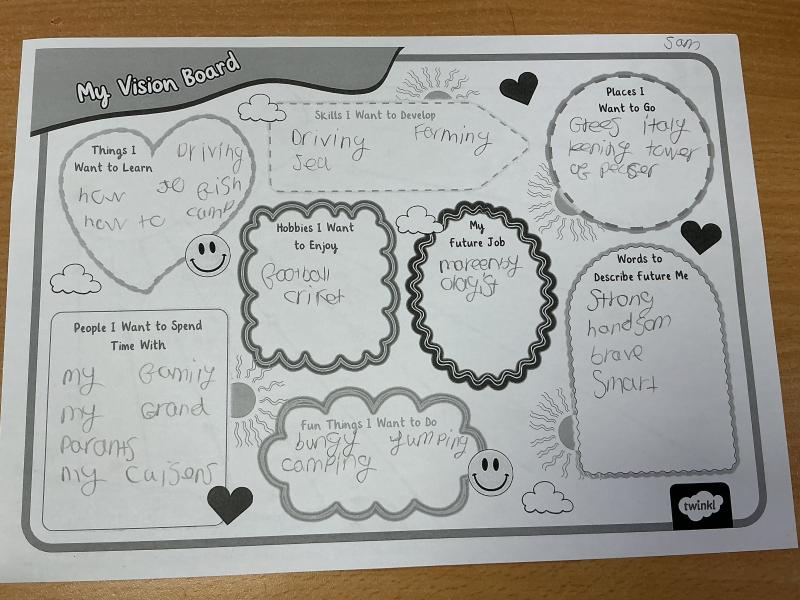 Sam
My Vision Board
Things I
Want to Learn
Driving
how to fish
how to camp
Skills I Want to Develop
Driving Farming
Sea
Places I
Want to Go
Grees italy
leening tower
of peaser
Hobbies I Want
to Enjoy
football
criket
My
Future Job
mareenby
ologist
Words to
Describe Future Me
Strong
handsom
brave
Smart
People I Want to Spend
Time With
my family
my Grand
Parants
my cuisens
Fun Things I Want to Do
bungy yumping
camping
twinkl